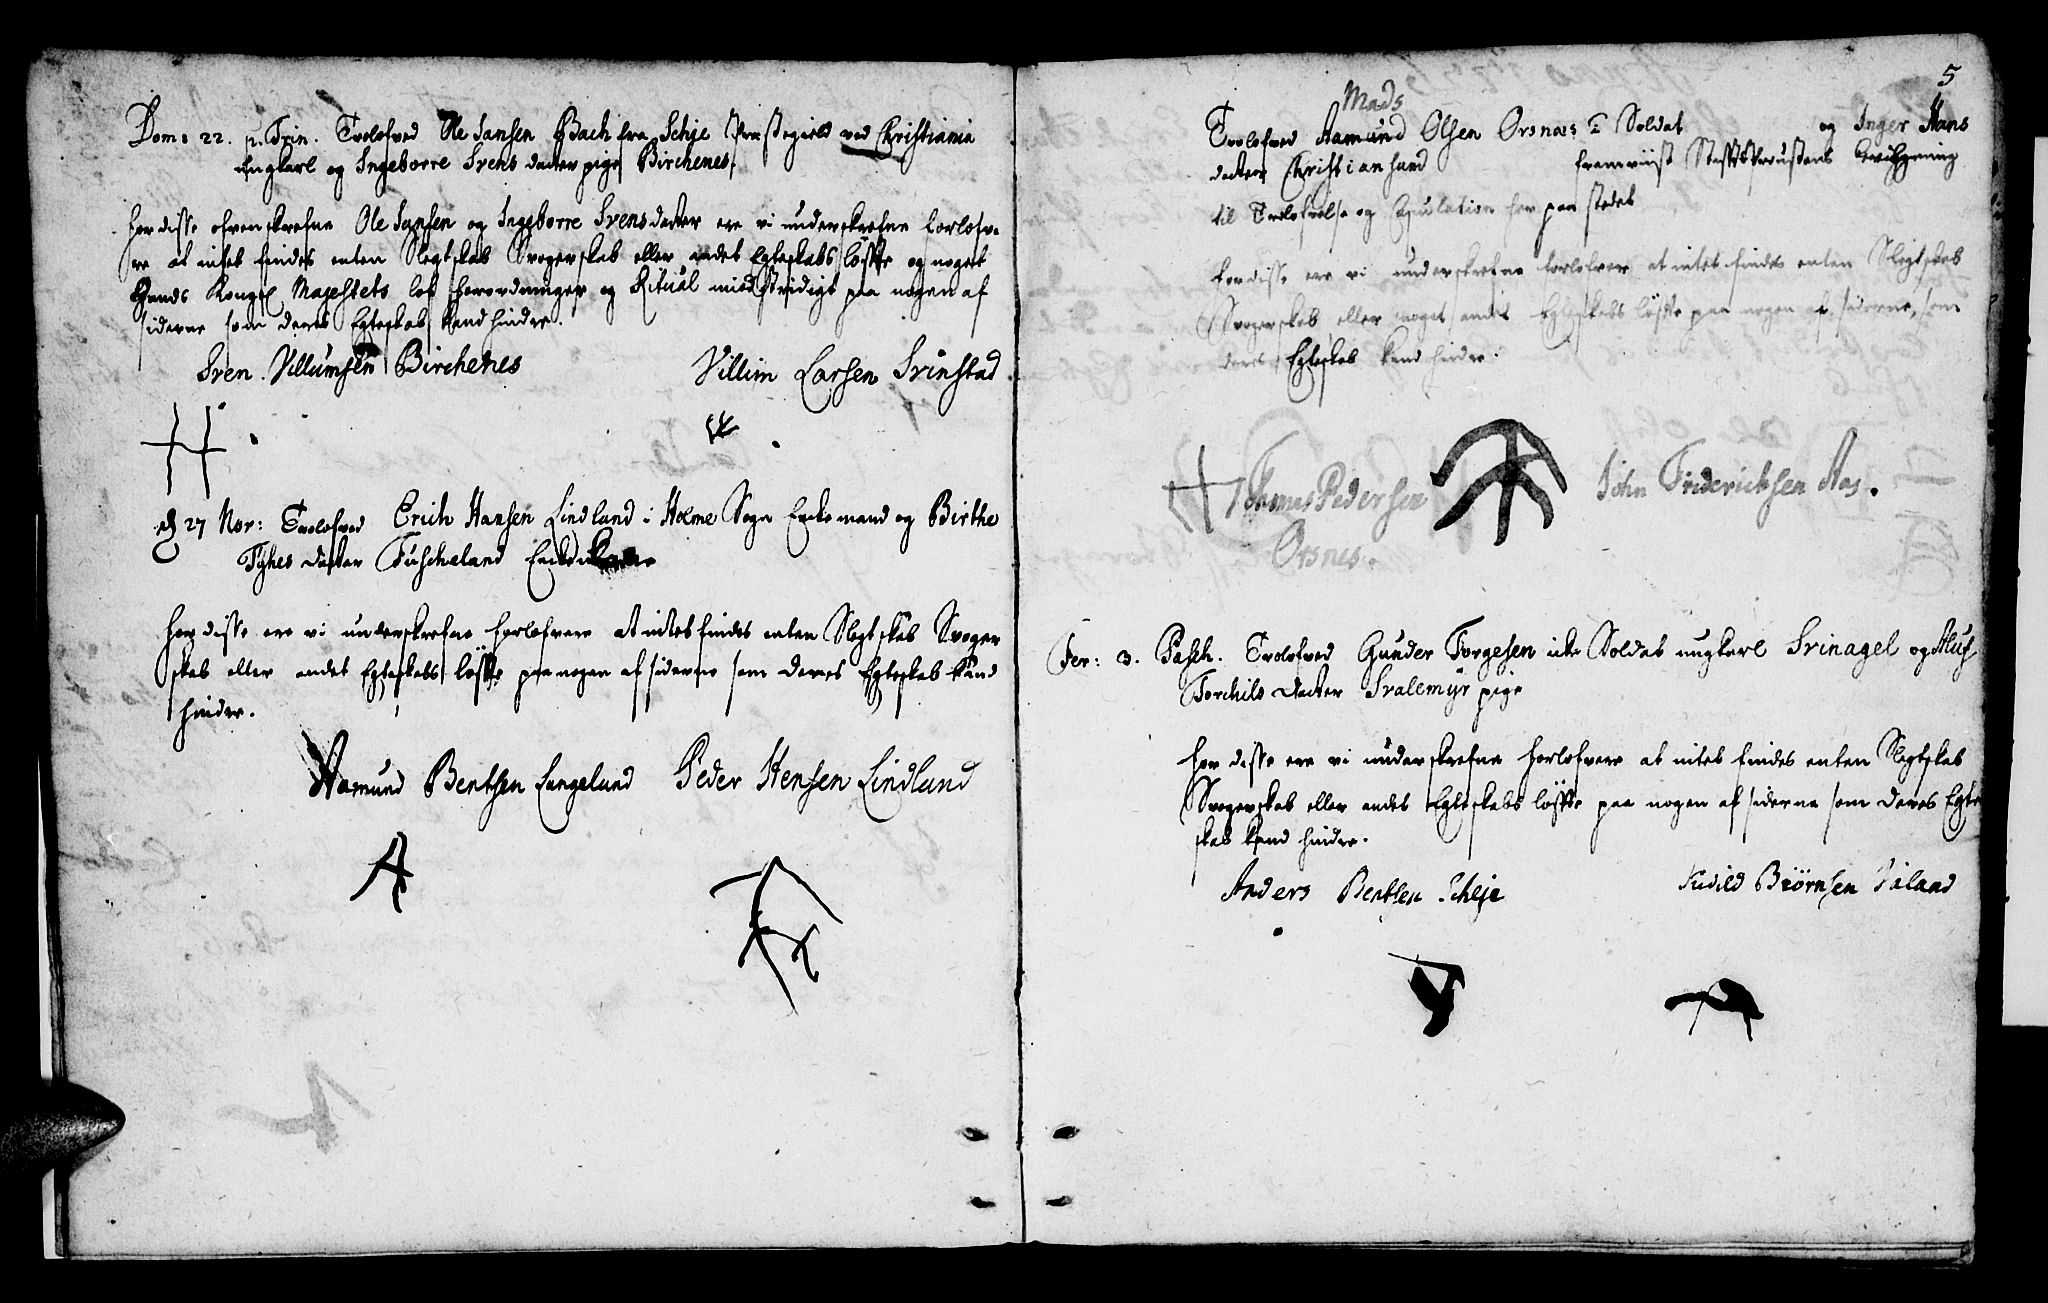 Dom: 22. p. Trin. Trolofved Ole Jansen Bach fra Schje Præstegield ved Christiania
Ungkarl og Ingeborre Svens datter pige Birchenes.
For disse ofvenskrefne Ole Jansen og Ingeborre Svensdatter ere vi underskrefne forlofve-
re at intet findes enten Slegtskab Svogerskab eller andet Egteskabs løfte og noget
Hands Kongl Majestets lov forordninger og Ritual modstridigt paa nogen af
siderne som deres Egteskab kand hindre.
Sven Villumsen Birchenes Villim Larsen Svinstad
d 27 Nov: Trolofved Erich Hansen Lindland i Holme Sogn Enkemand og Birthe
Tyhes datter Fuscheland
For disse ere vi underskrefne forlofvere at intet findes enten Slegtskab Svoger
skab eller andet Egteskabs løfte paa nogen af siderne som deres Egteskab kand
hindre.
Aamund Bentsen Langeland Peder Hensen Lindland
5
Mads
Trolofved Aamund Olsen Orsnæs Soldat og Inger Hans
datter Christiansand fremviist bevilgning
til Trolofvelse og Copulation her paa stedet
For disse ere vi underskrefne forlofver at intet findes enten Slegtskab
Svogerskab eller noget andet Egteskabs løfte paa nogen af siderne, som
deres Egteskab kand hindre.
Thomas Pedersen John Friderichsen Aas.
Orsnes.
Fer: 3. Pasch. Trolofved Gunder Torgesen icke Soldat ungkarl Svinagel og Aluf
Torchils datter Svalemyr pige
For disse ere vi underskrefne forlofvere at intet findes enten Slegtskab
Svogerskab eller andet Egteskabs løfte paa nogen af siderne som deres Egte
skab kand hindre.
Anders Bentsen Scheje Biørnsen